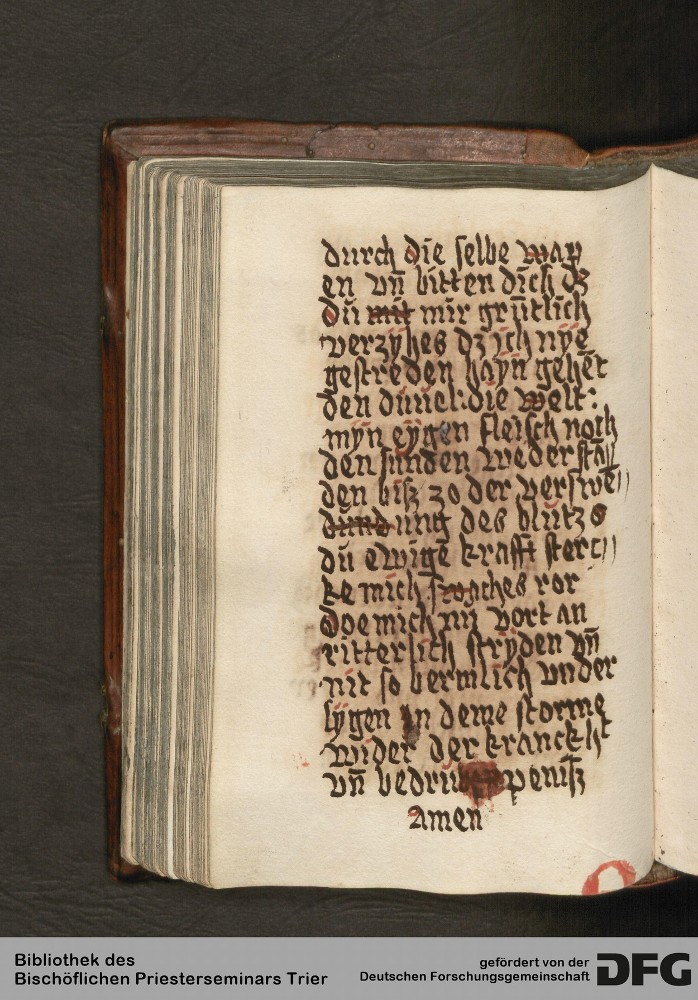 durch die selbe wap
en vn̄ bitten dich dz
du mit mir grūtlich
verzyhes dz ich nye
gestreden hayn gehēt
den duuel: die welt:
myn eygen fleisch noch
den sunden weder stā//
den bisz zo der verswē//
dund ung des blutzs
du ewige krafft sterc//
ke mich
doe mich nu vort an
ritterlich stryden vn̄
nit so bermlich vnder
lygen in deme storme
wider der kranckht
vn̄
Amen
Bibliothek des
Bischöflichen Priesterseminars Trier
gefördert von der
Deutschen Forschungsgemeinschaft DFG